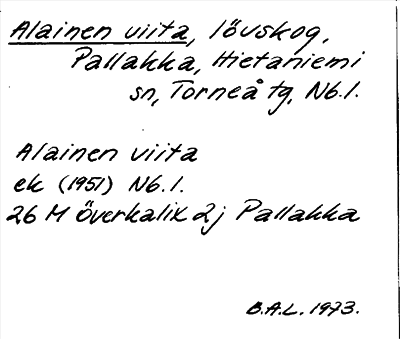 Alainen viita, lövskog,
Pallakka, Hietaniemi
sn, Torneå tg, Nb.l.
Alainen viita
ek (1951) Nb.l.
26 M Överkalix 2j Pallakka
B.A.L. 1973.